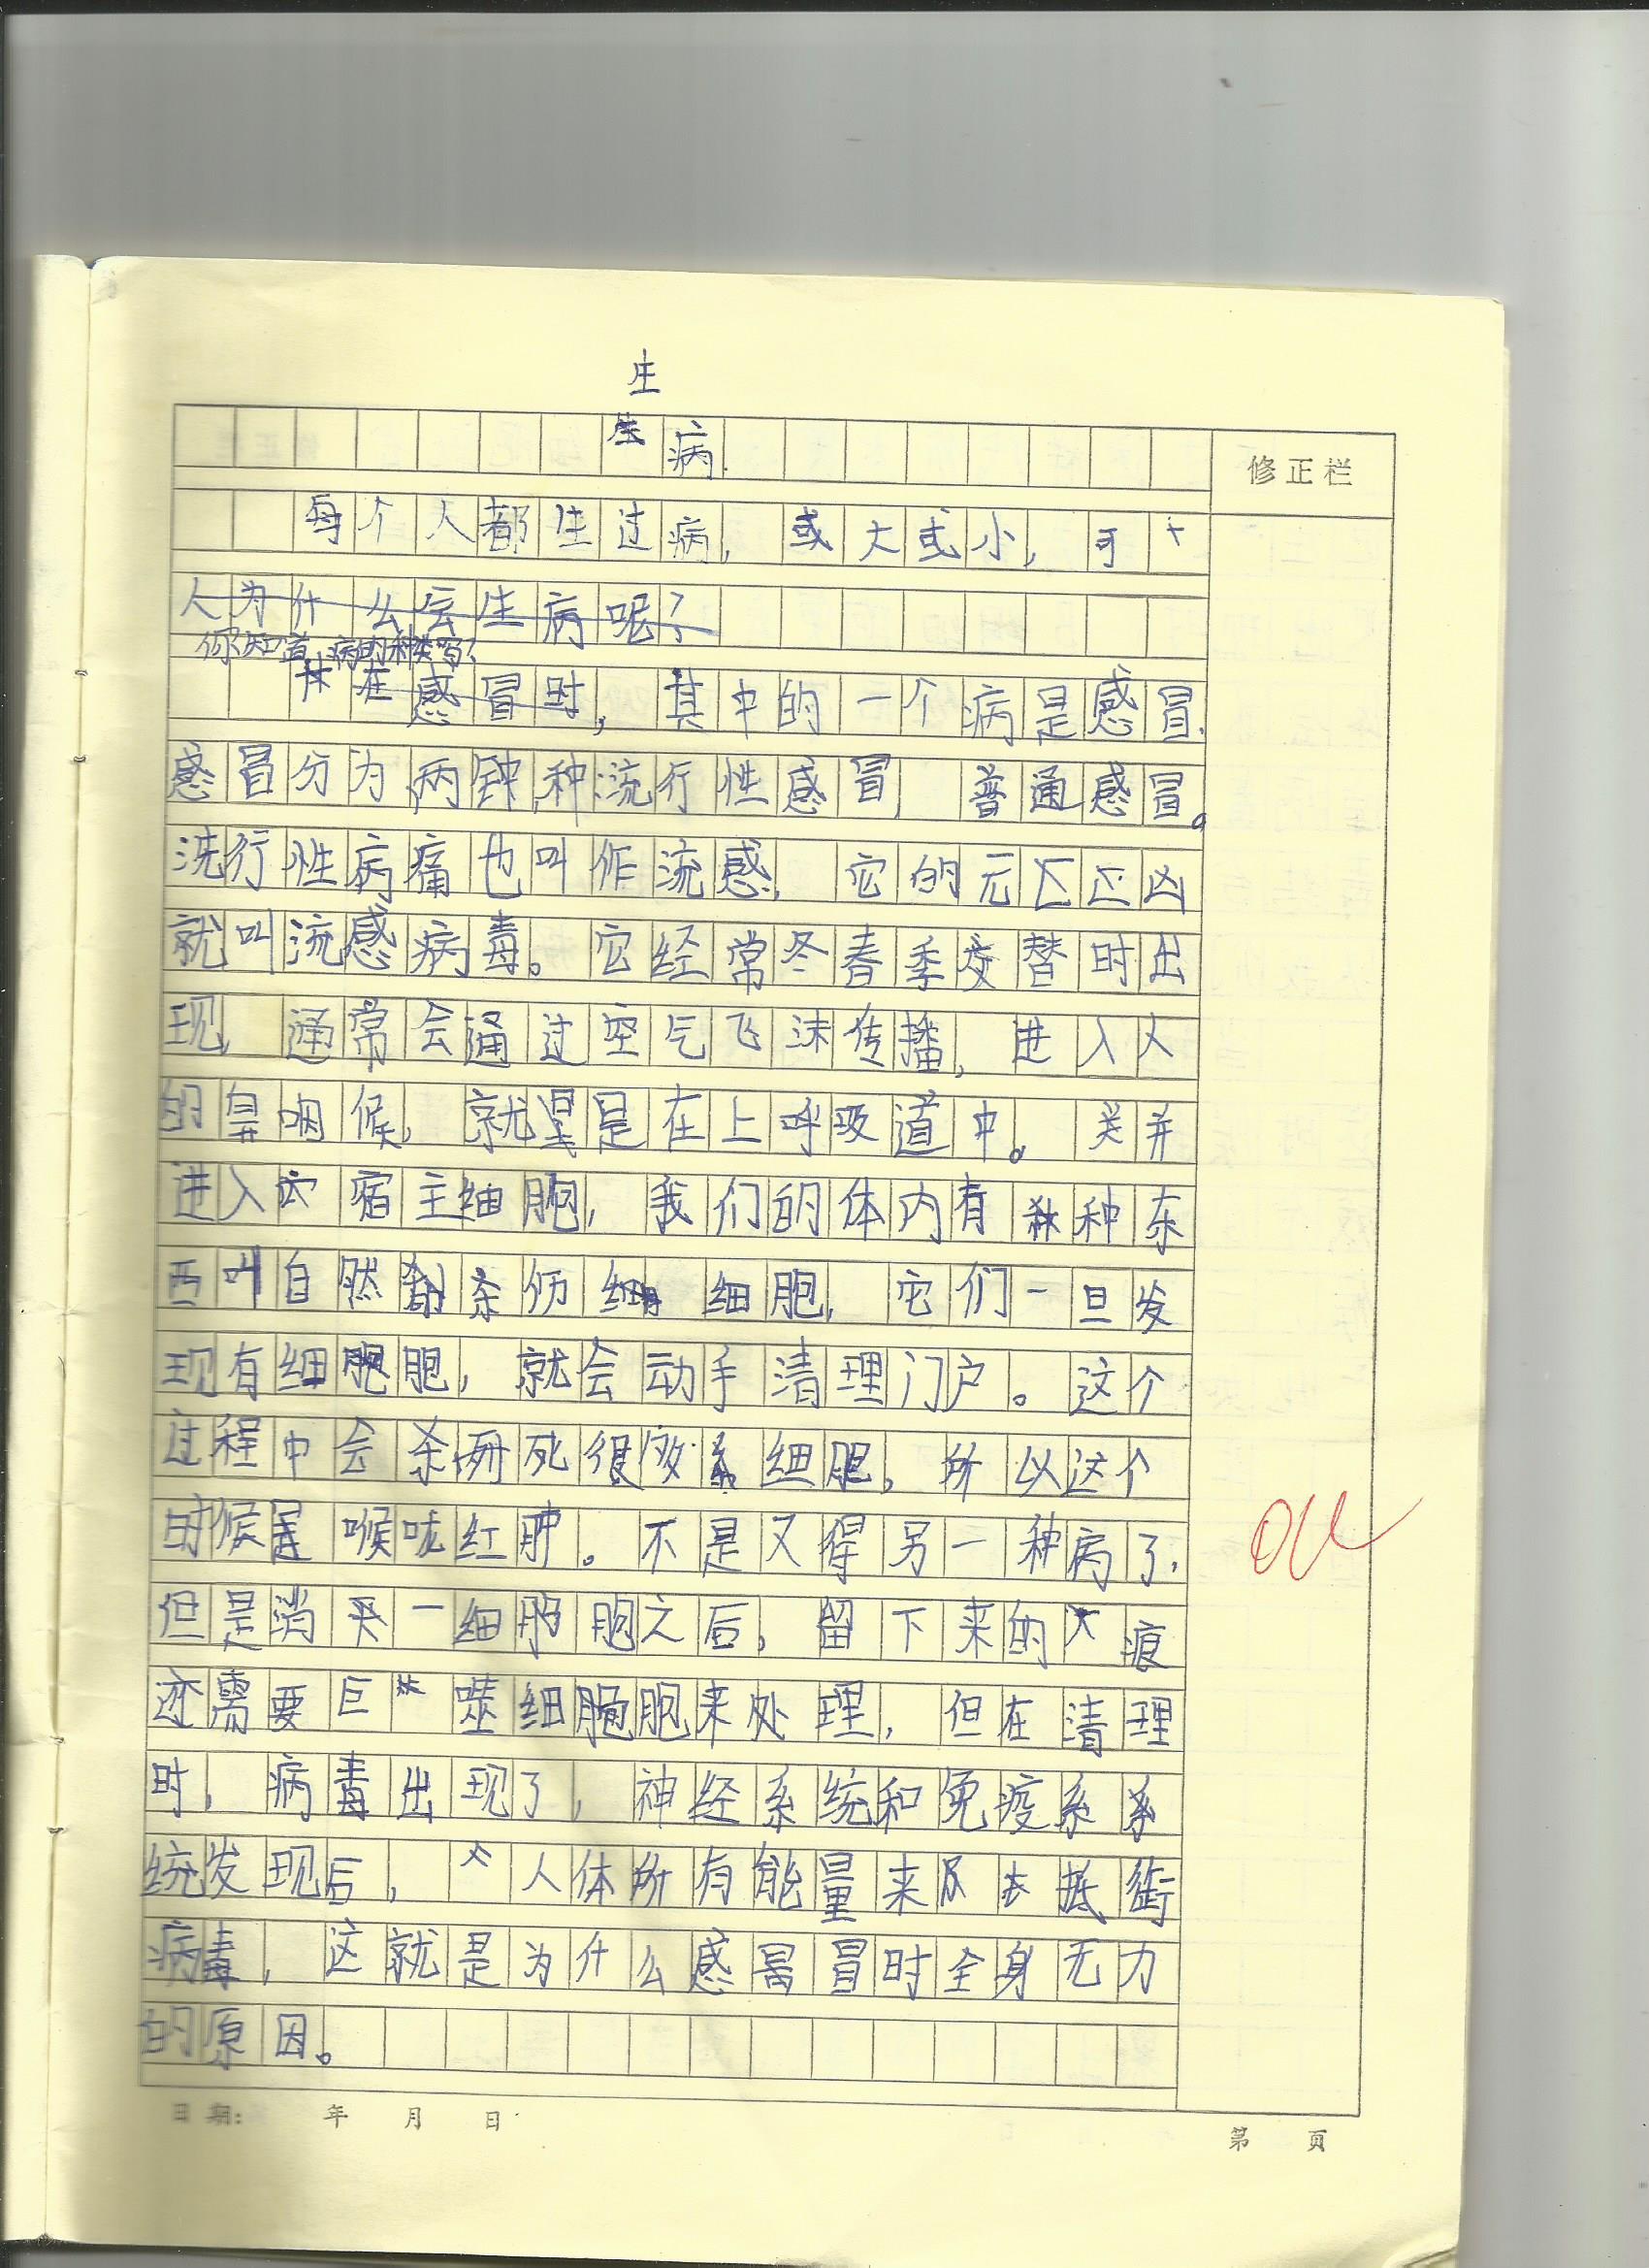 生
病
修正栏
每个人都生过病，或大或小，可
人为什么会生病呢？
你知道病的种类吗？
在感冒时，其中的一个病是感冒.
感冒分为两种流行性感冒 普通感冒。
流行性病痛也叫作流感，它的元凶
就叫流感病毒。它经常冬春季交替时出
现，通常会通过空气飞沫传播，进入人
的鼻咽候，就是在上呼吸道中。并
进入宿主细胞，我们的体内有种东
西叫自然杀伤细胞，它们一旦发
现有细胞，就会动手清理门户。这个
过程中会杀死很多细胞，所以这个
时候喉咙红肿。不是又得另一种病了，
但是消灭一细胞之后，留下来的痕
迹需要巨噬细胞来处理，但在清理
时，病毒出现了，神经系统和免疫系
统发现后，人体所有能量来抵御
病毒，这就是为什么感冒时全身无力
的原因。
日期: 年 月 日
第 页